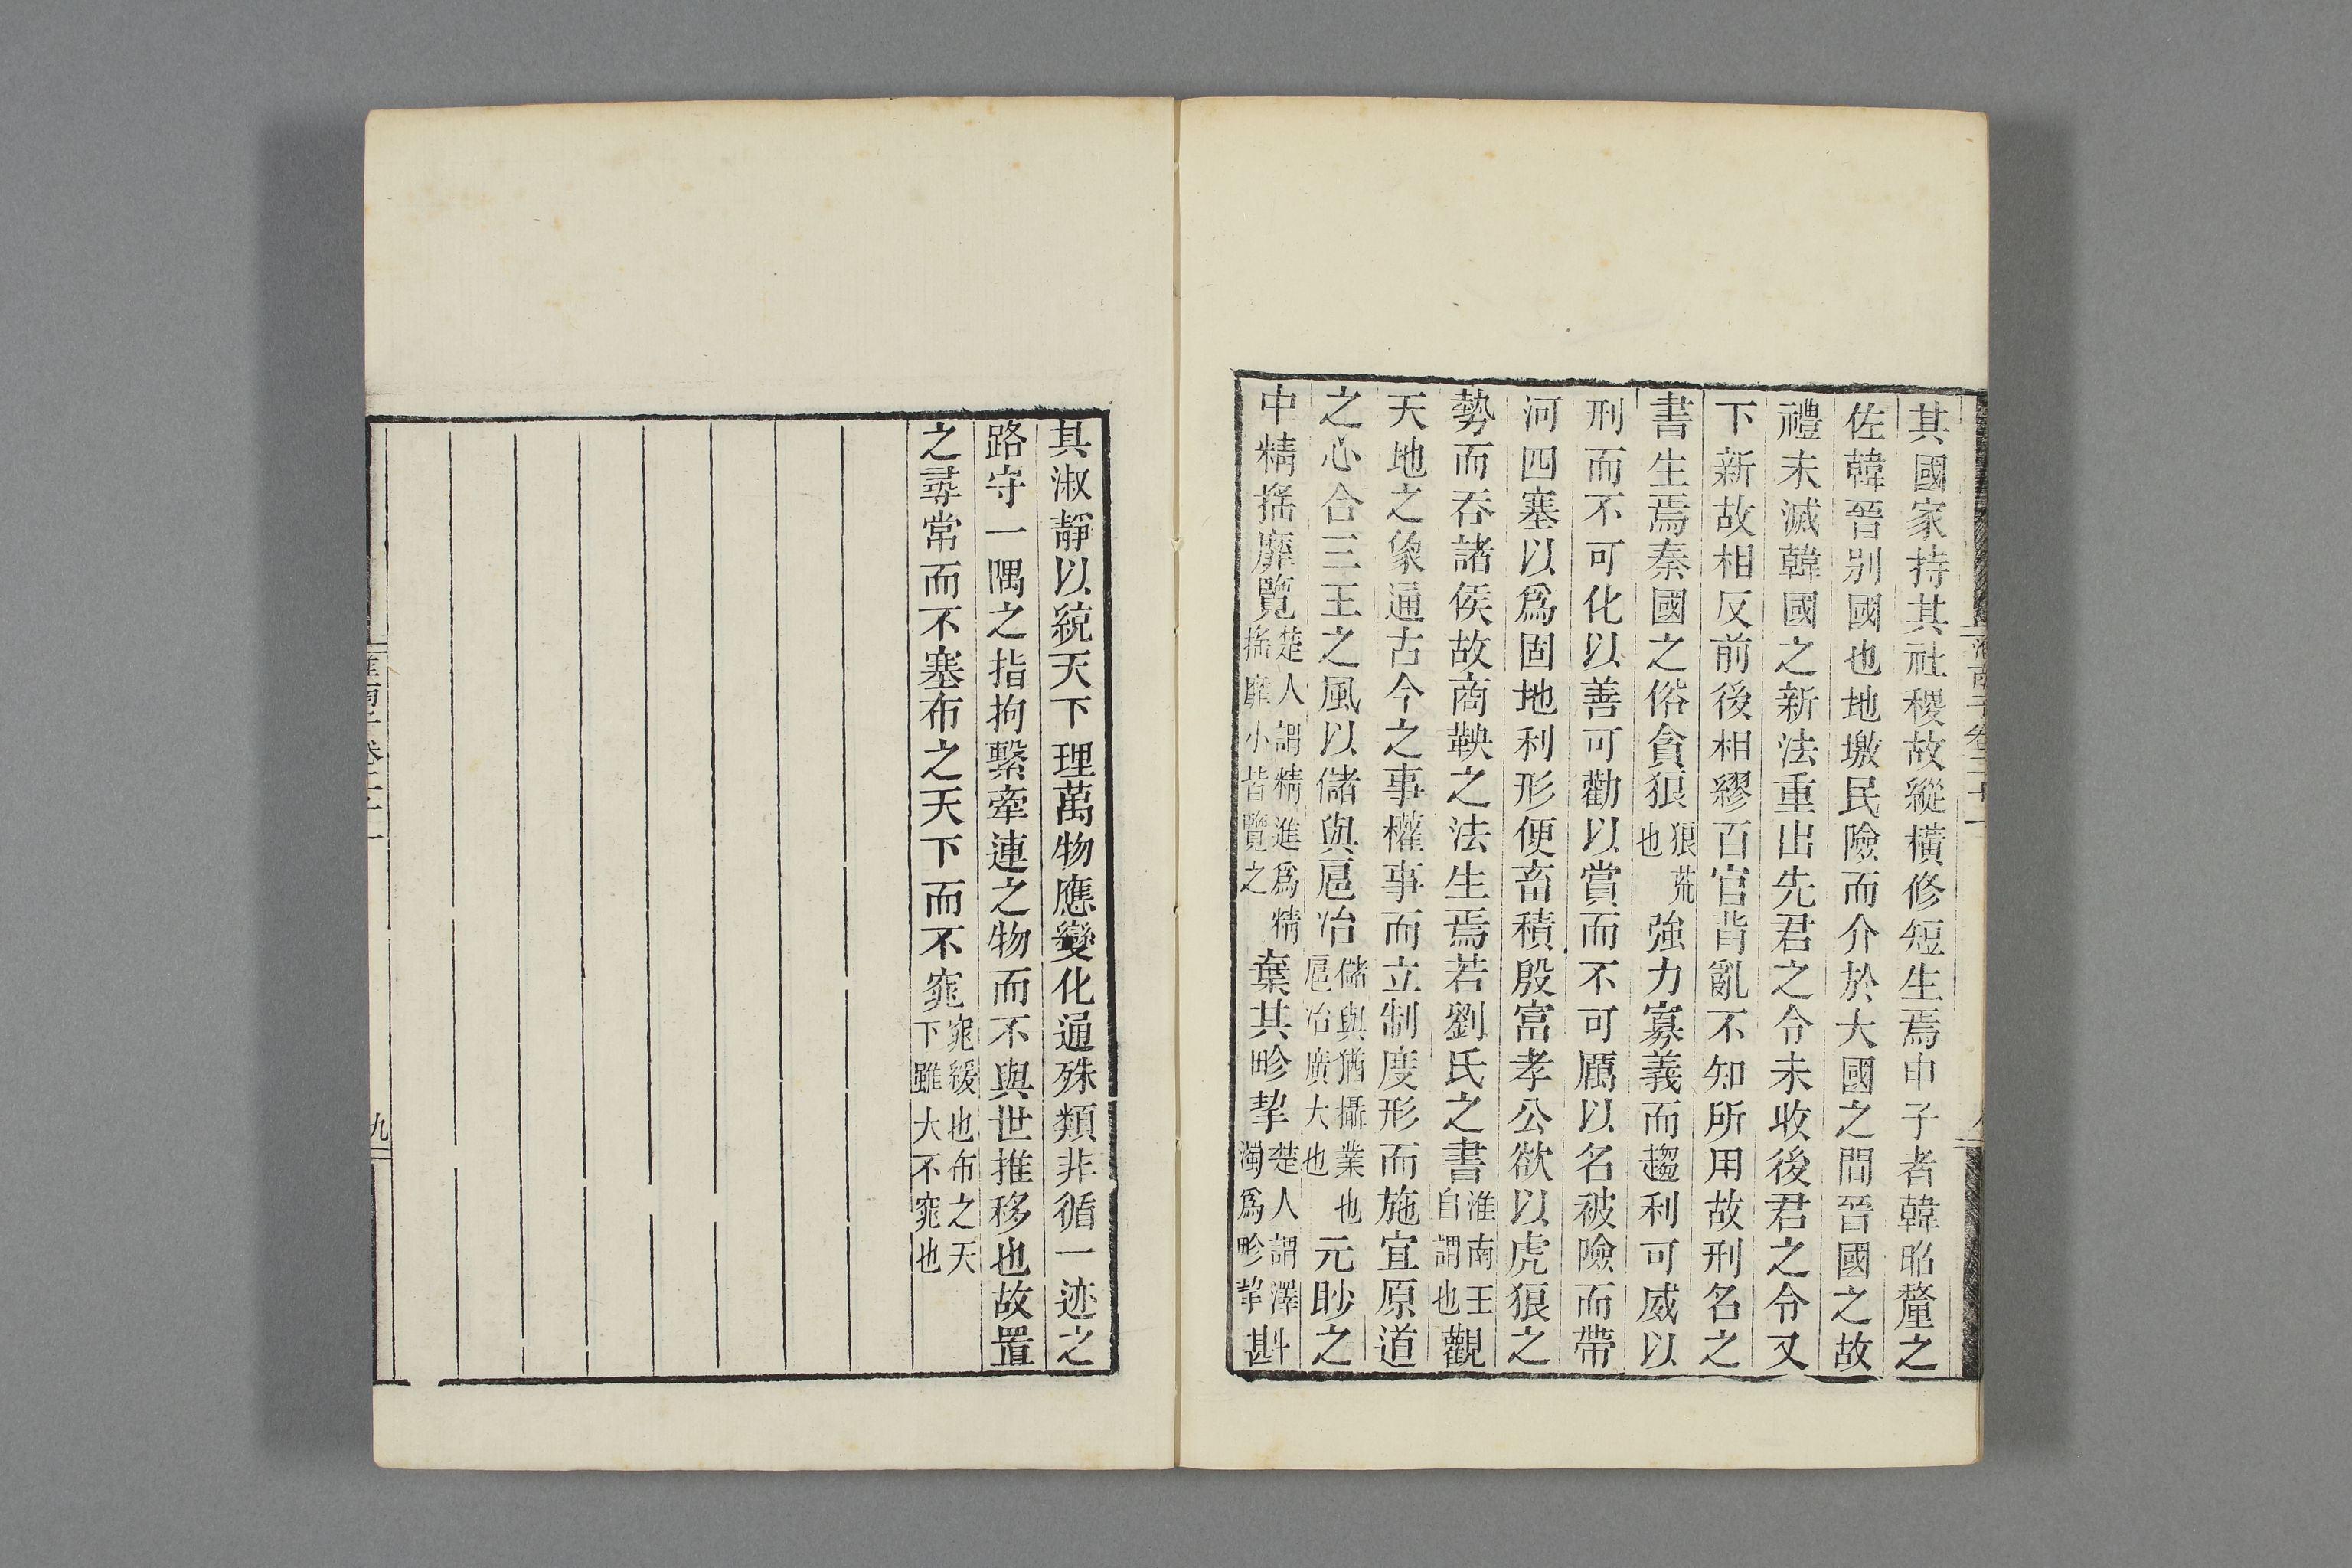 其國家持其社稷故縱橫修短生焉申子者韓昭釐之
佐韓晉别國也地墽民險而介於大國之間晉國之故
禮未滅韓國之新法重出先君之令未收後君之令又
下新故相反前後相繆百官背亂不知所用故刑名之
書生焉秦國之俗貪狼狼荒也強力寡義而趨利可威以
刑而不可化以善可勸以賞而不可厲以名被險而帶
河四塞以爲固地利形便畜積殷富孝公欲以虎狼之
勢而吞諸侯故商鞅之法生焉若劉氏之書淮南王自謂也觀
天地之象通古今之事權事而立制度形而施宜原道
之心合三王之風以儲與扈冶儲與猶攝業也扈冶廣大也元眇之
中精搖靡覽楚人謂精進爲精搖靡小皆覽之棄其畛挈楚人謂澤濁爲畛挈斟
其淑靜以統天下理萬物應變化通殊類非循一迹之
路守一隅之指拘繫牽連之物而不與世推移也故置
之尋常而不塞布之天下而不窕窕緩也布之天下雖大不窕也
九